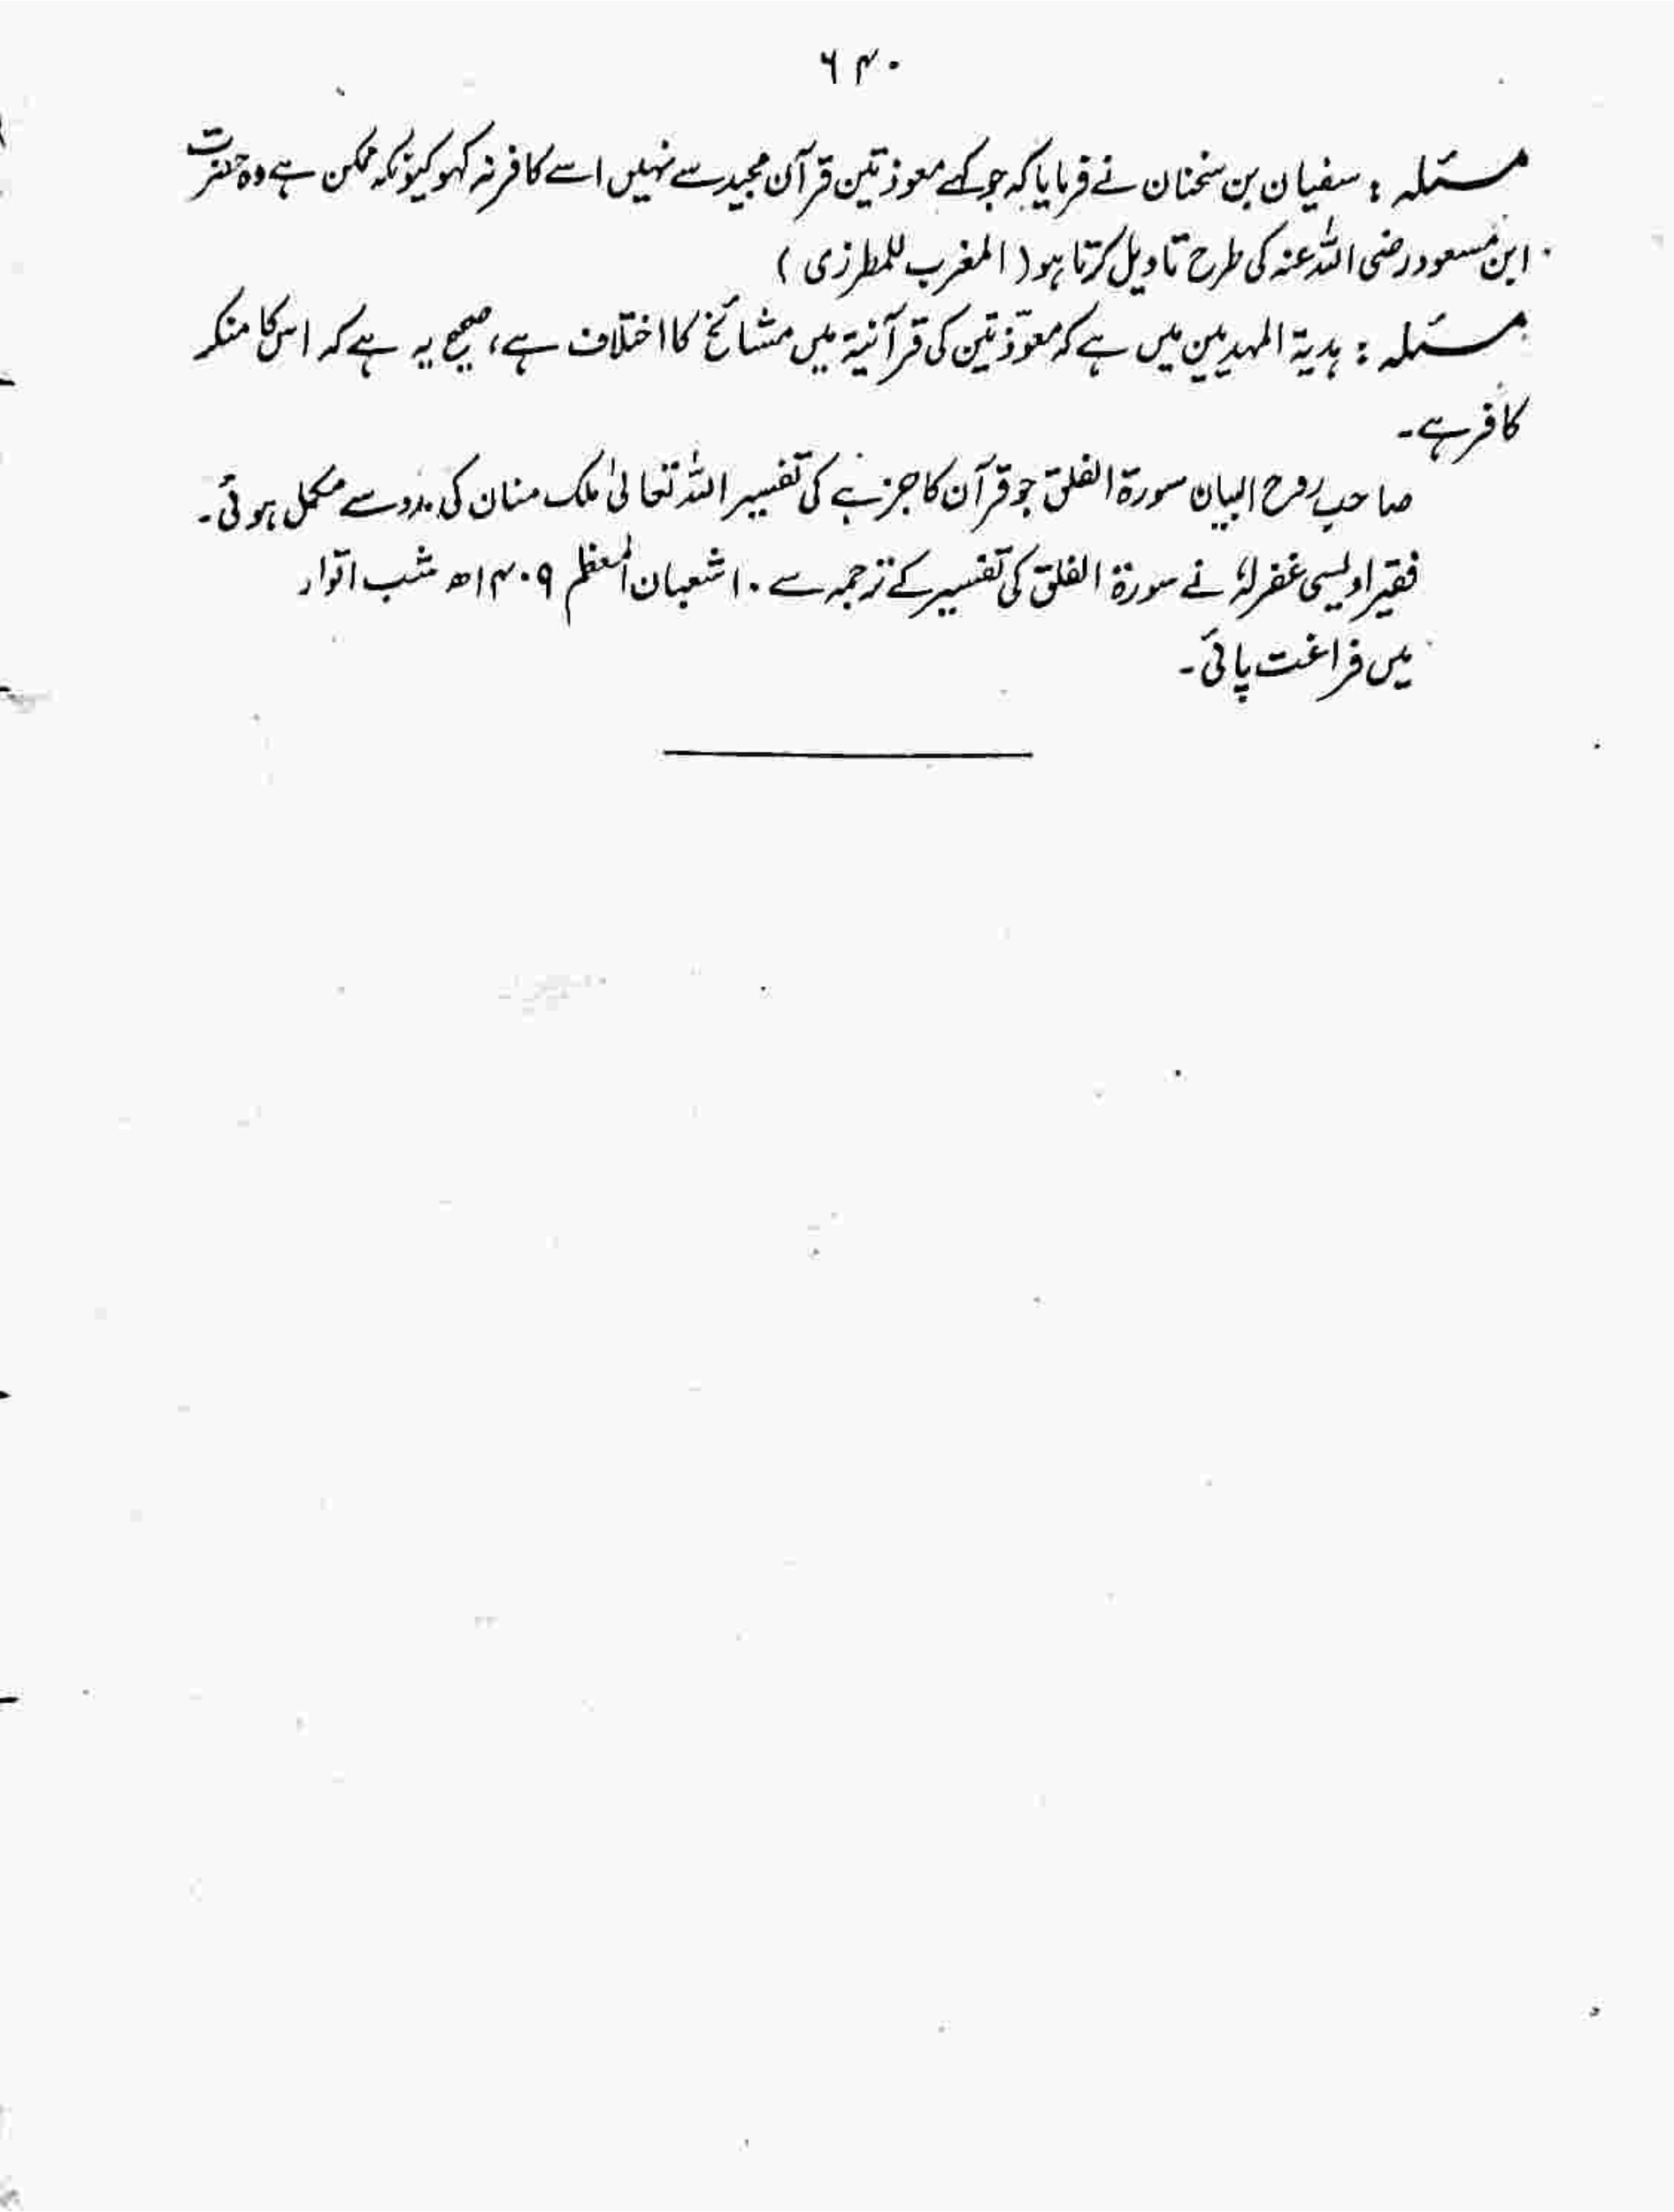 ۶۴۰
مسئلہ : سفیان بن سخنان نے فرمایا کہ جو کہے معوذتین قرآن مجید سے نہیں اسے کافر نہ کہو کیونکہ ممکن ہے وہ حضرت
ابن مسعود رضی اللہ عنہ کی طرح تاویل کرتا ہو ( المغرب للمطرزی )
مسئلہ : ہدیۃ المہدیین میں ہے کہ معوّذتین کی قرآنیۃ میں مشائخ کا اختلاف ہے، صحیح یہ ہے کہ اس کا منکر
کافر ہے۔
صاحب روح البیان سورۃ الفلق جو قرآن کا جز ہے کی تفسیر اللہ تعالیٰ ملک منان کی مدد سے مکمل ہوئی۔
فقیر اویسی غفرلہٗ نے سورۃ الفلق کی تفسیر کے ترجمہ سے ۱۰ شعبان المعظم ۱۴۰۹ھ شب اتوار
میں فراغت پائی۔